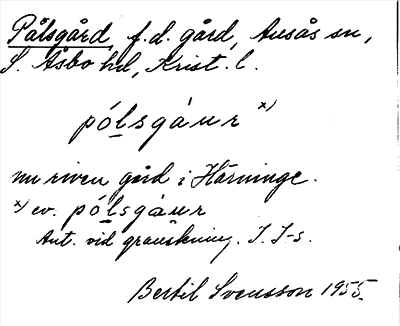 Pålsgård, f.d. gård, Ausås sn,
S. Åsbo hd, Krist. l.
pó̱lsgáur x)
nu riven gård i Härninge.
x) ev. pó̱lsgáur
Ant. vid granskning. I. I-s.
Bertil Svensson 1955.